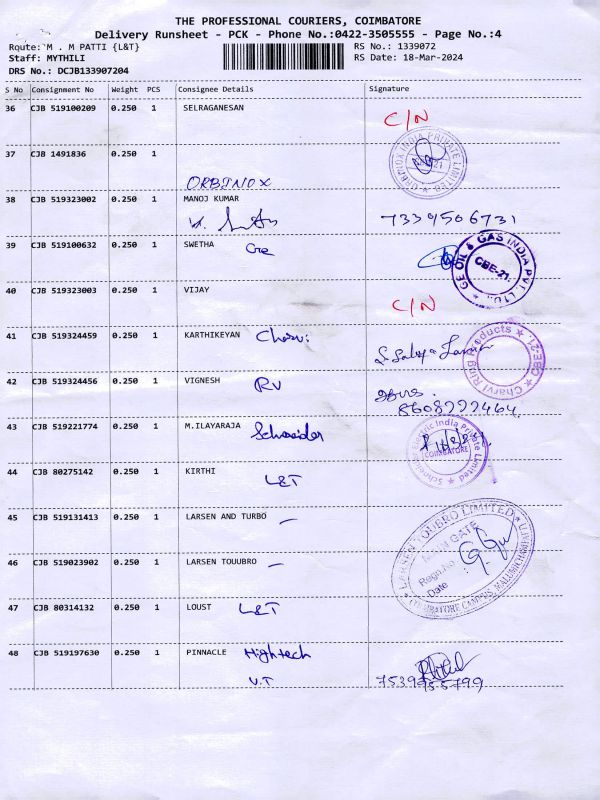 THE PROFESSIONAL COURIERS, COIMBATORE
Delivery Runsheet - PCK - Phone No.:0422-3505555 - Page No.:4
Route: M . M PATTI {L&T} RS No.: 1339072
Staff: MYTHILI RS Date: 18-Mar-2024
DRS No.: DCJB133907204
S No Consignment No Weight PCS Consignee Details Signature
36 CJB 519100209 0.250 1 SELRAGANESAN
C/N
37 CJB 1491836 0.250 1
ORBINOX INDIA PRIVATE LIMITED
ORBINOX
38 CJB 519323002 0.250 1 MANOJ KUMAR
7339506731
39 CJB 519100632 0.250 1 SWETHA Ge
GE OIL & GAS INDIA PVT. LTD. CBE-21.
40 CJB 519323003 0.250 1 VIJAY
C/N
41 CJB 519324459 0.250 1 KARTHIKEYAN
Charvi Ring Products CBE-21.
42 CJB 519324456 0.250 1 VIGNESH RV
8608222464
43 CJB 519221774 0.250 1 M.ILAYARAJA Schneider
Schneider Electric India Private Limited COIMBATORE
44 CJB 80275142 0.250 1 KIRTHI L&T
45 CJB 519131413 0.250 1 LARSEN AND TURBO
LARSEN TOUUBRO LIMITED
MAIN GATE
Regn.No :
Date :
COIMBATORE CAMPUS, MALUMICHAMPATTI
46 CJB 519023902 0.250 1 LARSEN TOUUBRO
47 CJB 80314132 0.250 1 LOUST L&T
48 CJB 519197630 0.250 1 PINNACLE Hightech
V.T 7539955799